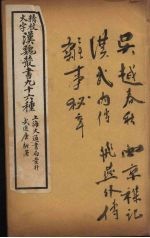 精校大字
漢魏叢書九十六種
上海大通書局發行
吳越春秋 西京雜記
漢武內傳 飛燕外傳
雜事秘辛